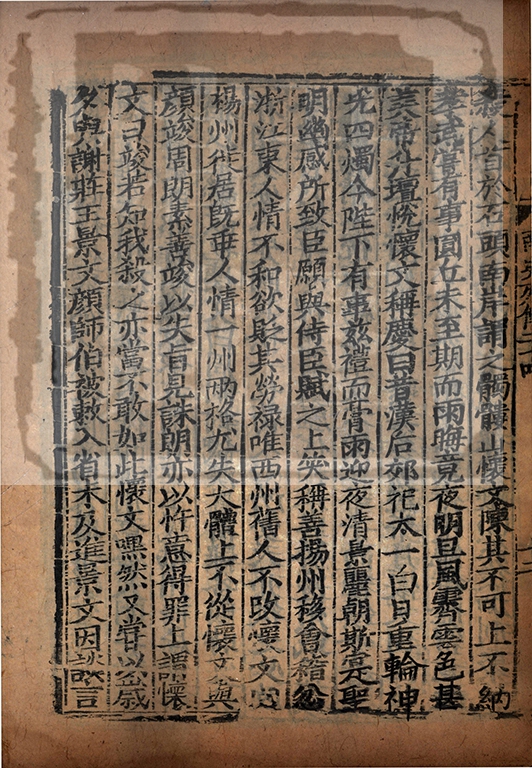 人首於石頭南岸謂之髑髏山懷文陳其不可上不納
孝武嘗有事圓丘未至期而雨晦竟夜明旦風霽雲色甚
美帝升壇悅懷文稱慶曰昔漢后郊祀太一白日重輪神
光四燭今陛下有事茲禮而膏雨迎夜清景麗朝斯寔聖
明幽感所致臣願與侍臣賦之上笑稱善揚州移會稽忿
浙江東人情不和欲貶其勞祿唯西州舊人不改懷文
楊州徙居既乖人情一州兩格尤失大體上不從懷文與
顏竣周朗素善竣以失旨見誅朗亦以忤意得罪上謂懷
文曰竣若知我殺之亦當不敢如此懷文嘿然又嘗以歲
夕與謝莊王景文顏師伯被敕入省未及進景文因談言